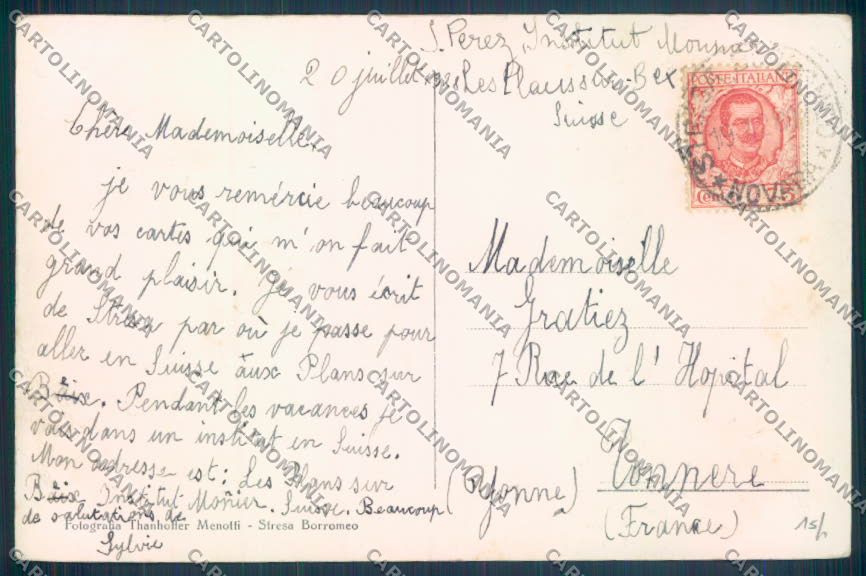 S. Perez, Institut
20 juillet 1928 Les Plans sur Bex
Suisse
Chère Mademoiselle.
je vous remércie beaucoup
de vos cartes qui m'on fait
grand plaisir. Je vous écrit
de Stresa par où je passe pour
aller en Suisse aux Plans sur
Bex. Pendant les vacances je
vais dans un institut en Suisse.
Mon adresse est: Les Plans sur
Bex Institut Monier. Suisse. Beaucoup
de salutations de
Sylvie
Mademoiselle
Gratiez
7 Rue de l'Hopital
Tonnere
(Yonne)
(France)
15/
POSTE ITALIANE
Fotografia Thanhoffer Menotti - Stresa Borromeo
CARTOLINOMANIA